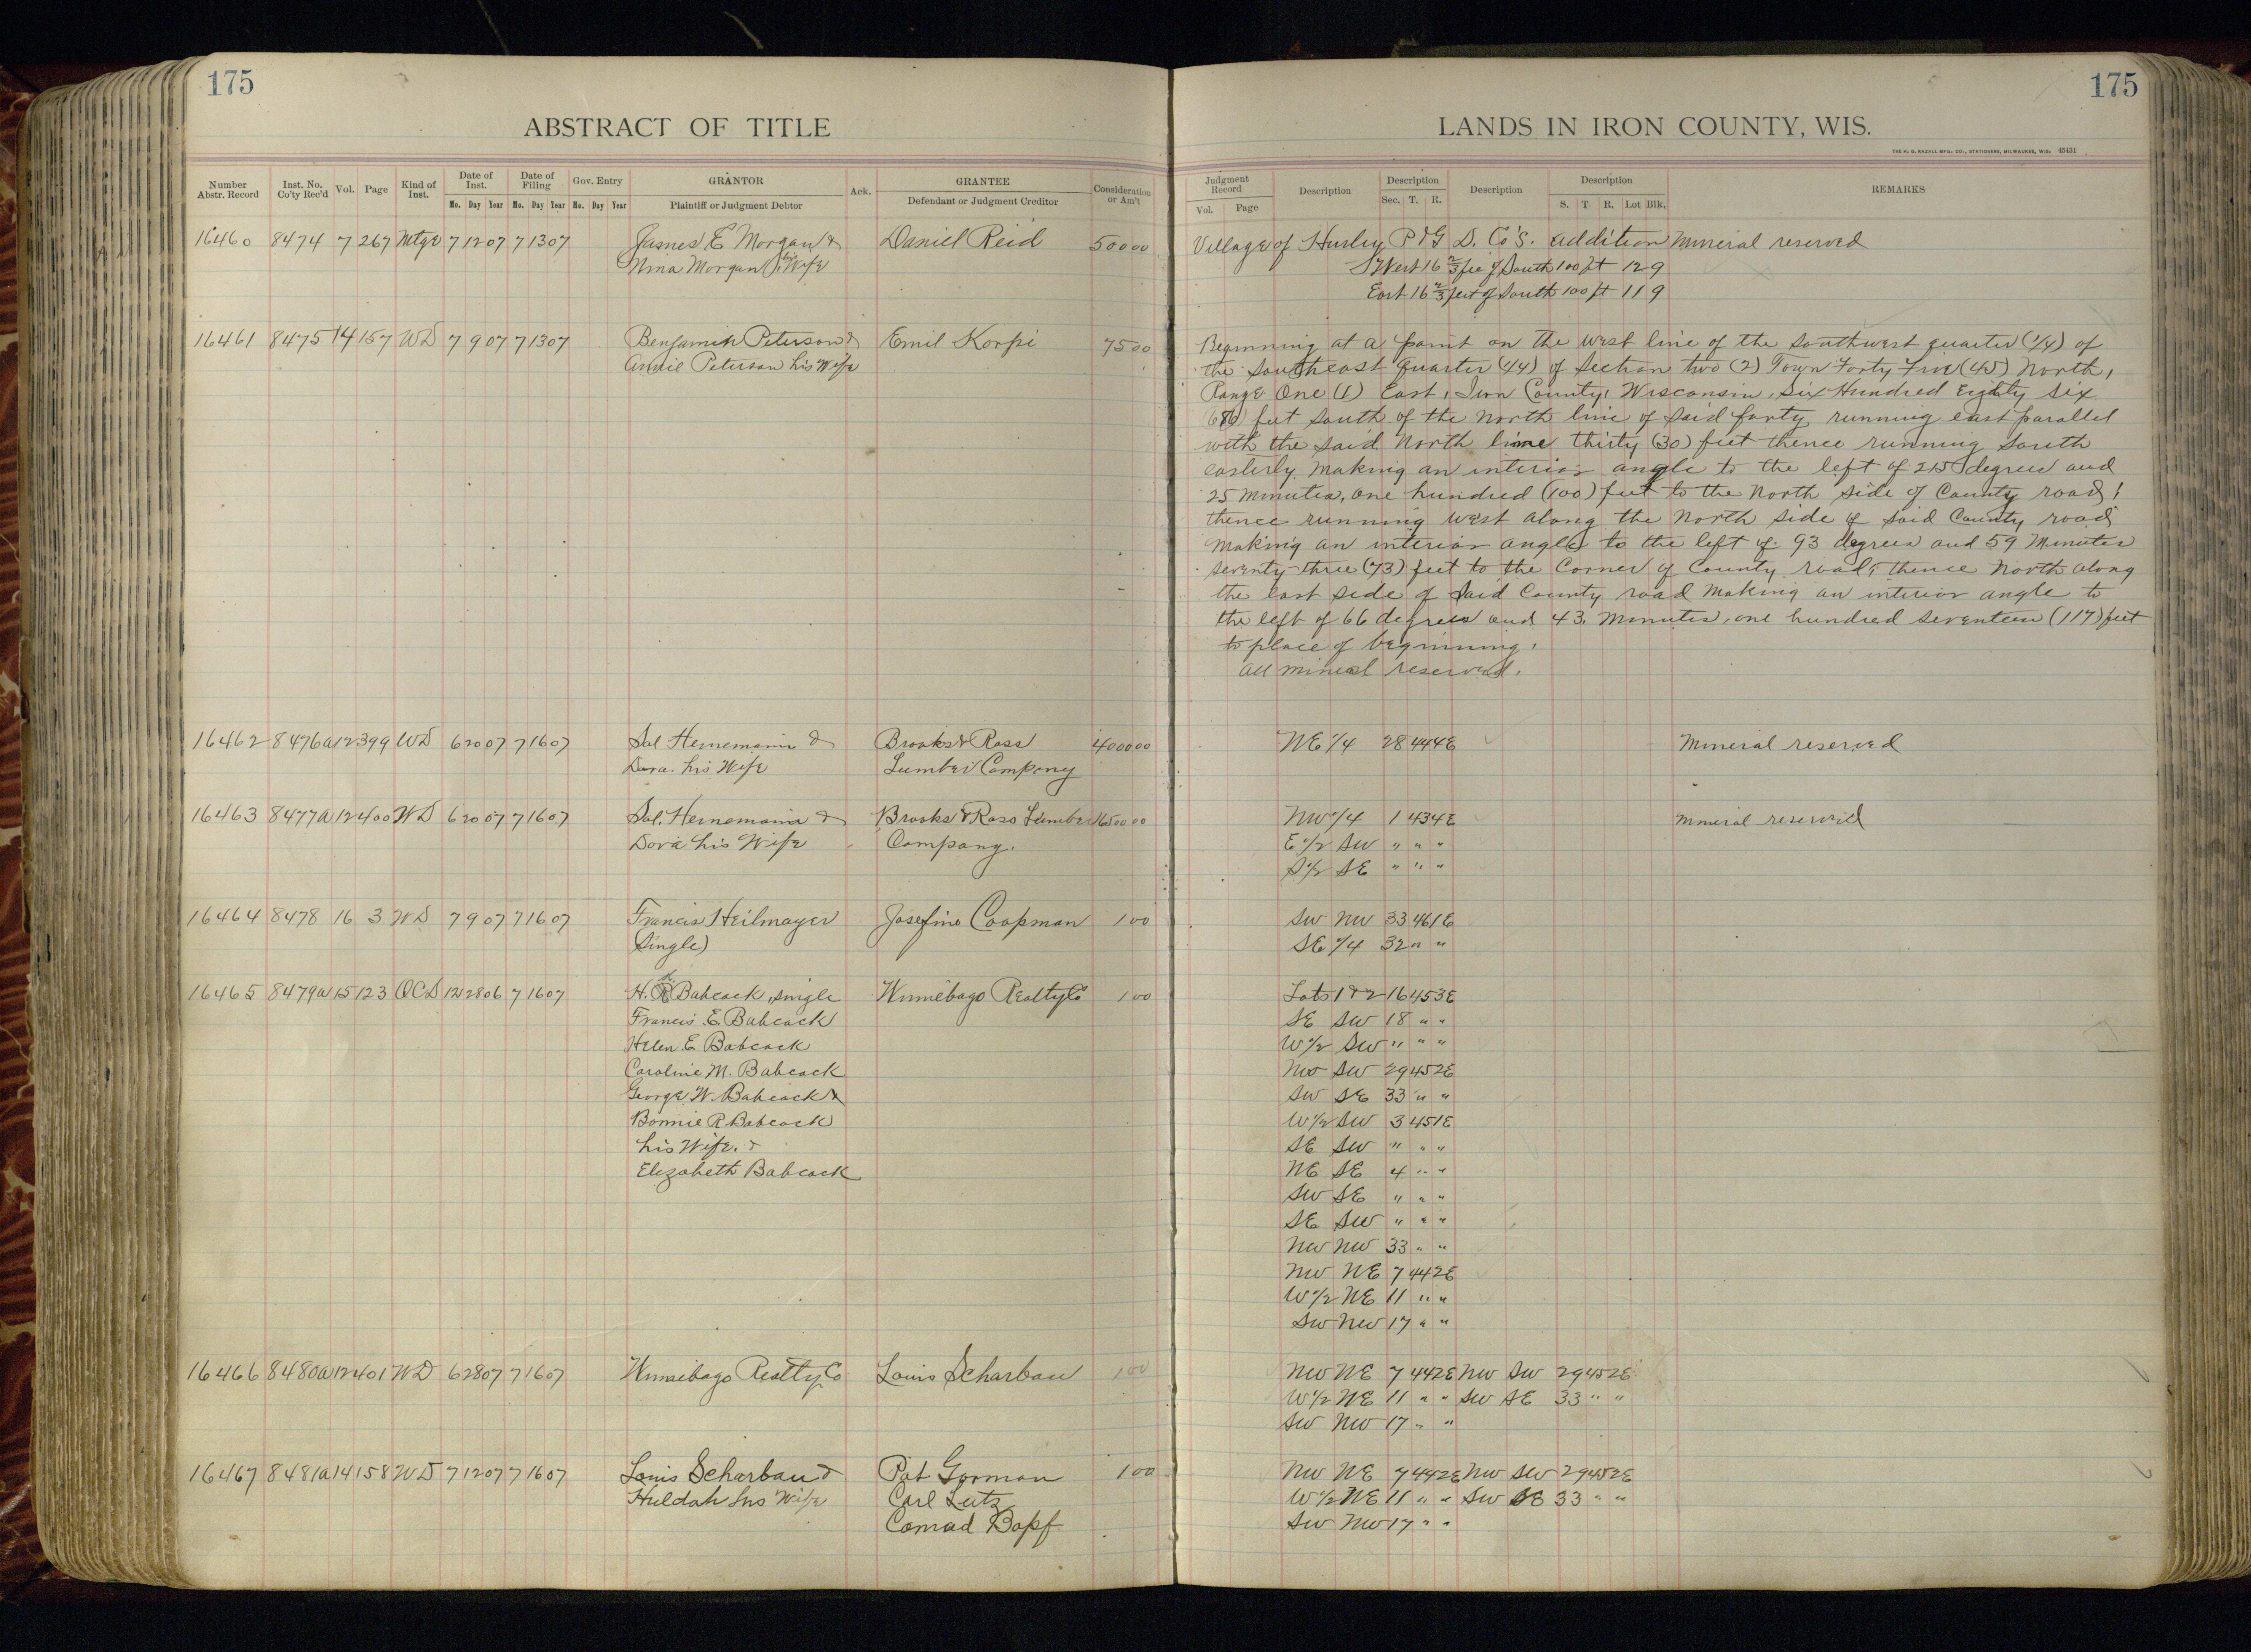 175
ABSTRACT OF TITLE
Number Abstr. Record Inst. No. Co'ty Rec'd Vol. Page Kind of Inst. Date of Inst. Mo. Day Year Date of Filing Mo. Day Year Gov. Entry Mo. Day Year GRANTOR Plaintiff or Judgment Debtor Ack. GRANTEE Defendant or Judgment Creditor Consideration or Am't
16460 8474 7 267 Mtge 7 12 07 7 13 07 James E Morgan & Daniel Reid 500 00
Nina Morgan, his Wife
16461 8475 14 157 WD 7 9 07 7 13 07 Benjamin Peterson & Emil Korpi 75 00
Annie Peterson his Wife
16462 8476a 12 399 WD 6 20 07 7 16 07 Sal. Heinemann & Brooks & Ross 4000 00
Dora. his Wife Lumber Company
16463 8477a 12 400 WD 6 20 07 7 16 07 Sal. Heinemann & Brooks & Ross Lumber 16500 00
Dora his Wife Company.
16464 8478 16 3 WD 7 9 07 7 16 07 Francis Heilmayer Josefine Coopman 1 00
(Single)
16465 8479a 15 123 QCD 12 28 06 7 16 07 H. R Babcock, single Winnebago Realty Co 1 00
Francis E. Babcock
Helen E Babcock
Caroline M. Babcock
George W. Babcock &
Bonnie R Babcock
his Wife. &
Elizabeth Babcock
16466 8480a 12 401 WD 6 28 07 7 16 07 Winnebago Realty Co Louis Scharbau 1 00
16467 8481a 14 158 WD 7 12 07 7 16 07 Louis Scharbau & Pat Gorman 1 00
Huldah his Wife Carl Lutz
Conrad Bopf
175
LANDS IN IRON COUNTY, WIS.
THE H. G. RAZALL MFG. CO., STATIONERS, MILWAUKEE, WIS. 45431
Judgment Record Vol. Page Description Description Sec. T. R. Description Description S. T. R. Lot Blk. REMARKS
Village of Hurley P & G D. Co's. addition Mineral reserved
West 16 2/3 fee of South 100 ft 12 9
East 16 2/3 feet of South 100 ft 11 9
Beginning at a point on the west line of the Southwest quarter (1/4) of
the Southeast quarter (1/4) of Section two (2) Town Forty Five (45) North,
Range One (1) East, Iron County, Wisconsin, Six Hundred Eighty six
686 feet South of the North line of said forty running east parallel
with the said North line thirty (30) feet thence running South
easterly making an interior angle to the left of 215 degrees and
25 minutes, one hundred (100) feet to the North side of County road;
thence running west along the North side of said County road
Making an interior angle to the left of 93 degrees and 59 Minutes
seventy three (73) feet to the Corner of County road; thence North along
the east side of said County road Making an interior angle to
the left of 66 degrees and 43. Minutes, one hundred seventeen (117) feet
to place of beginning.
All mineral reserved.
NE 1/4 28 44 4E Mineral reserved
NW 1/4 1 43 4E Mineral reserved
E 1/2 SW " " "
S 1/2 SE " " "
SW NW 33 46 1E
SE 1/4 32 " "
Lots 1 & 2 16 45 3E
SE SW 18 " "
W 1/2 SW " " "
NW SW 29 45 2E
SW SE 33 " "
W 1/2 SW 3 45 1E
SE SW " " "
NE SE 4 " "
SW SE " " "
SE SW " " "
NW NW 33 " "
NW NE 7 44 2E
W 1/2 NE 11 " "
SW NW 17 " "
NW NE 7 44 2E NW SW 29 45 2E
W 1/2 NE 11 " " SW SE 33 " "
SW NW 17 " "
NW NE 7 44 2E NW SW 29 45 2E
W 1/2 NE 11 " " SW SE 33 " "
SW NW 17 " "